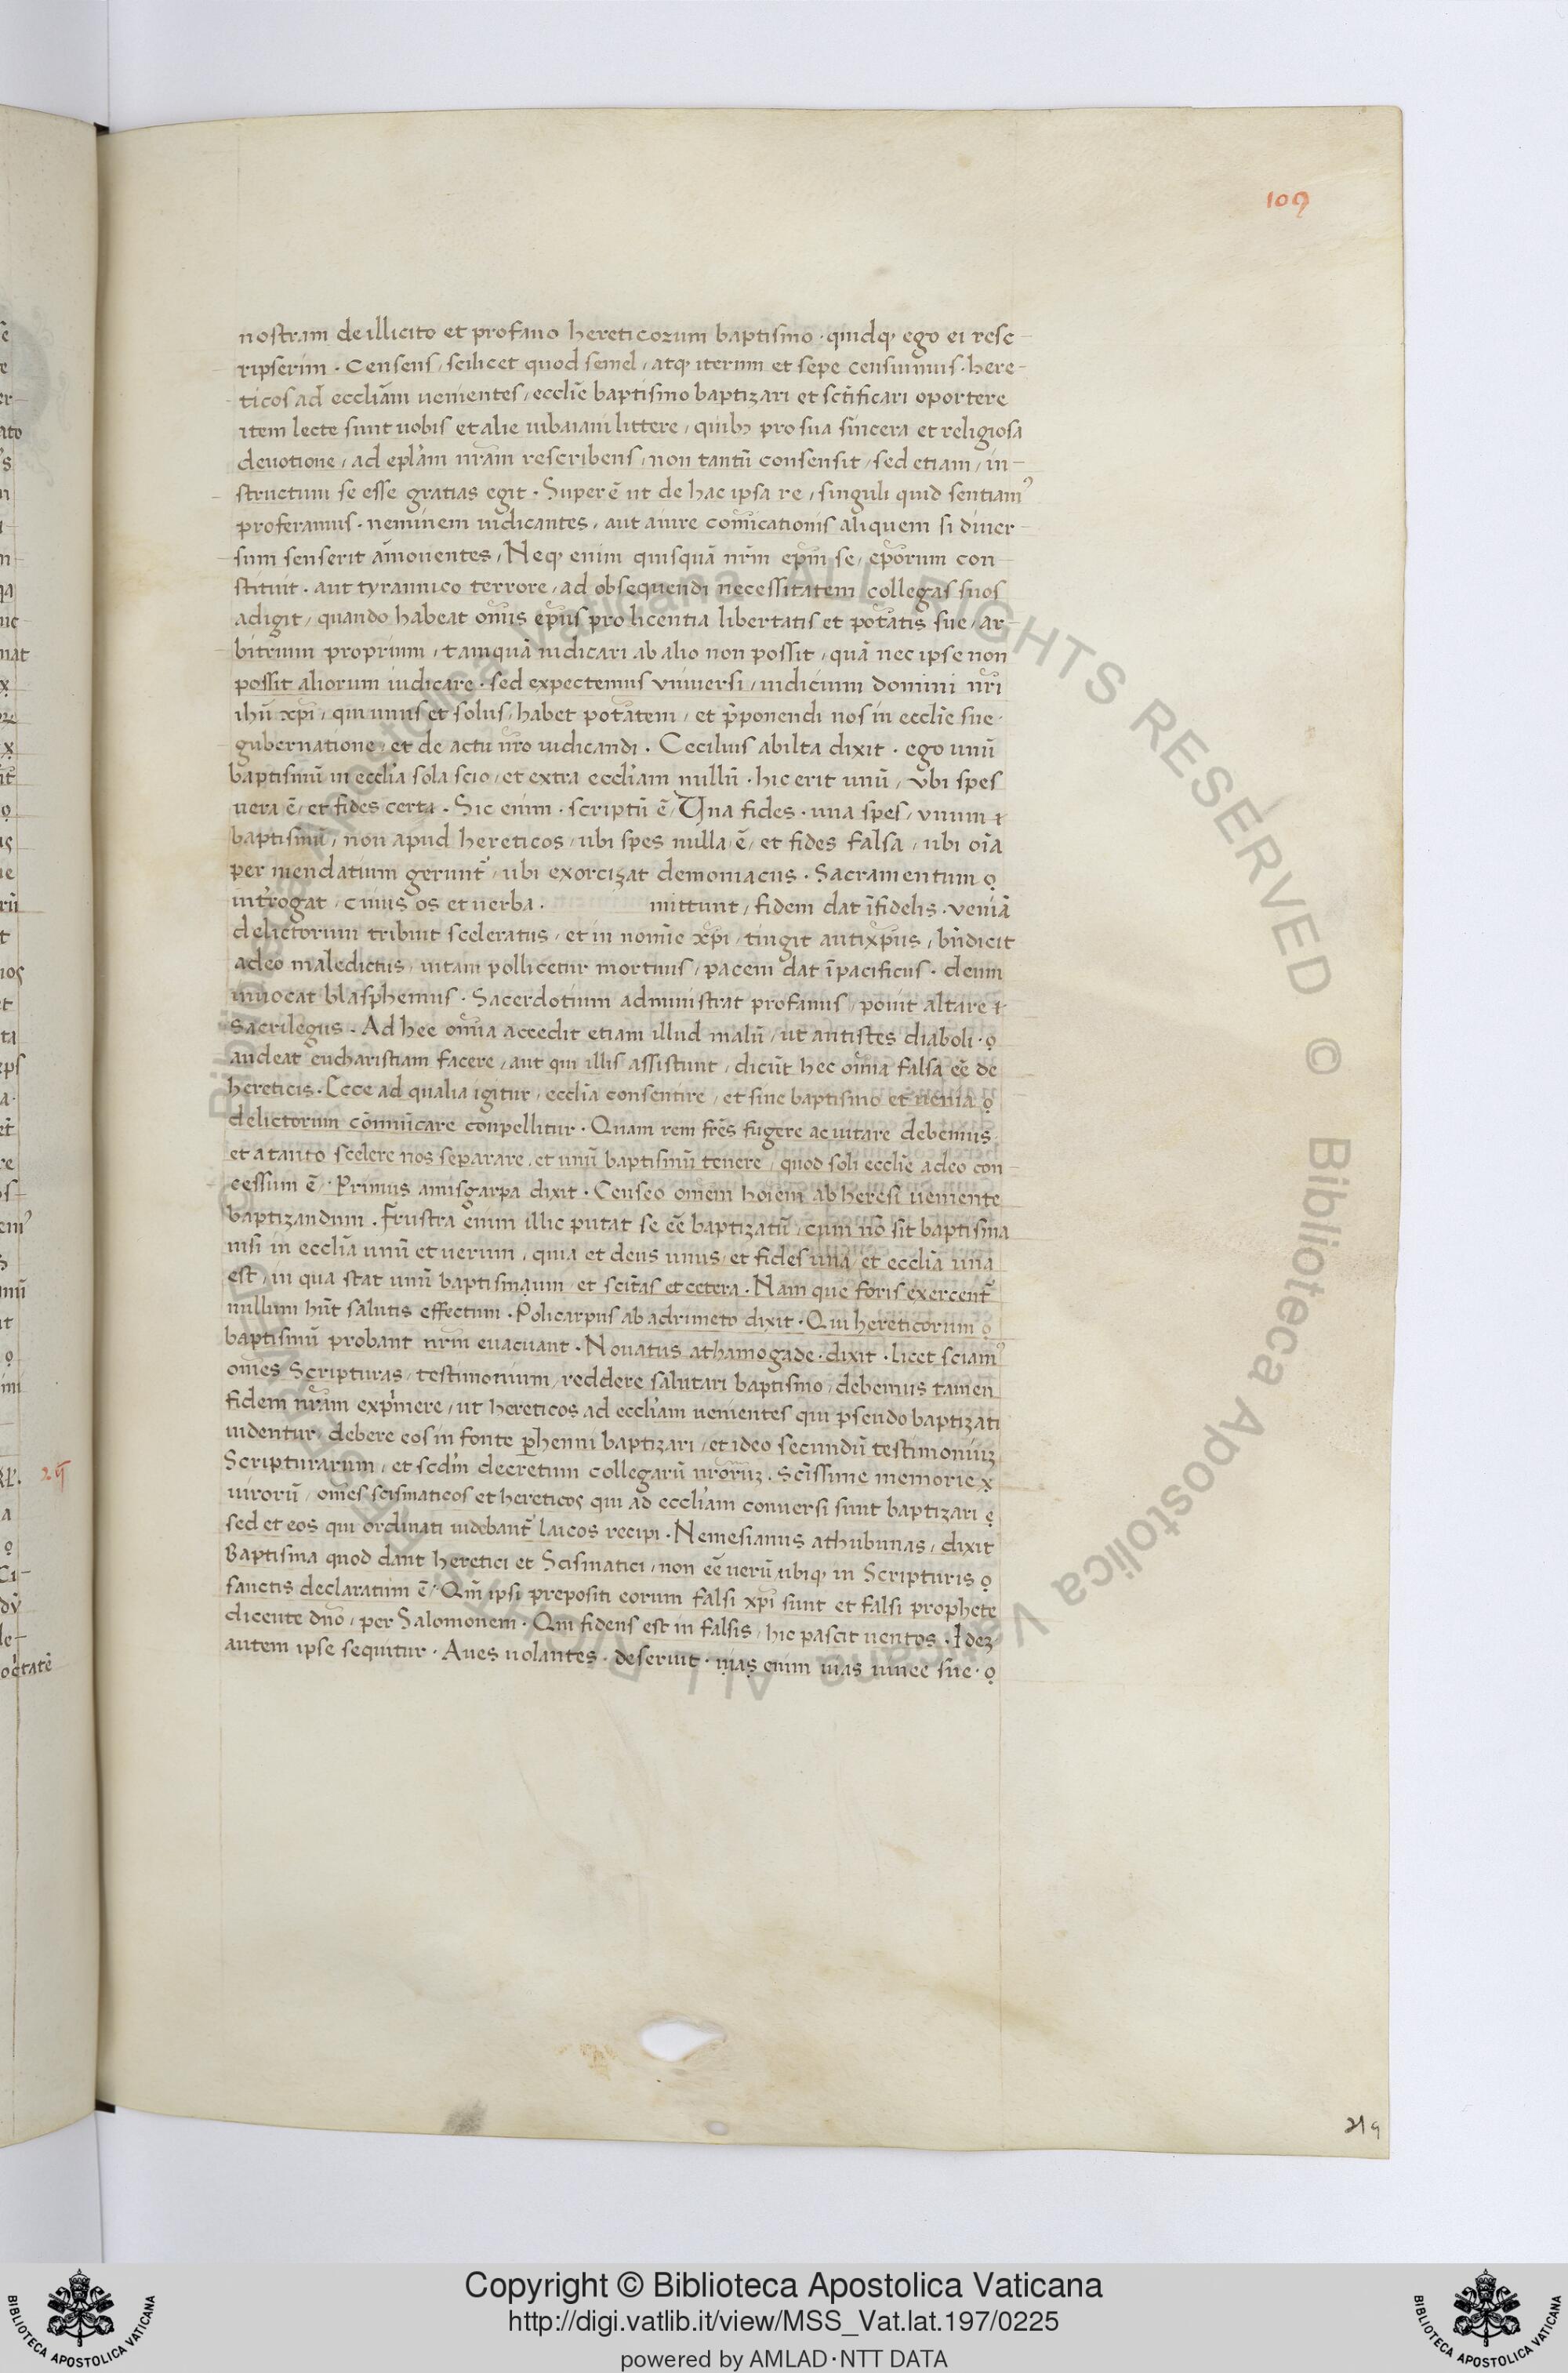 109
nostram de illicito et profano hereticorum baptismo · quidq, ego ei resc-
ripserim · Censens, scilicet quod semel, atq, iterum et sepe censuimus · here-
ticos ad eccliam uenientes, ecclie baptismo baptizari et sctificari oportere
item lecte sunt uobis et alie iubaiani littere, quibꝫ pro sua sincera et religiosa
deuotione, ad eplam nram rescribens, non tantū consensit, sed etiam, in-
structum se esse gratias egit · Super ē ut de hac ipsa re, singuli quid sentiamꝰ
proferamus · neminem iudicantes, aut aiure comicationis aliquem si diuer-
sum senserit amouentes, Neq, enim quisquā nrm epm se, eporum con
stituit · aut tyrannico terrore, ad obsequendi necessitatem collegas suos
adigit, quando habeat omis epus pro licentia libertatis et potatis sue, ar-
bitrium proprium, tamquā iudicari ab alio non possit, quā nec ipse non
possit aliorum iudicare · sed expectemus vniuersi, iudicium domini nri
ihu xpi, qui unus et solus, habet potatem, et pponendi nos in ecclie sue ·
gubernatione, et de actu nro iudicandi · Cecilius abilta dixit · ego unū
baptismū in ecclia sola scio, et extra eccliam nullū · hic erit unū, vbi spes
uera ē, et fides certa · Sic enim · scriptū ē, Una fides · una spes, vnum
baptismū, non apud hereticos, ubi spes nulla ē, et fides falsa, ubi oīa
per mendatium gerunt, ubi exorcizat demoniacus · Sacramentum
introgat, cuius os et uerba · mittunt, fidem dat īfidelis · veniā
delictorum tribuit sceleratus, et in nomie xpi, tingit antixpus, bndicit
adeo maledictus, uitam pollicetur mortuus, pacem dat īpacificus · deum
inuocat blasphemus · Sacerdotium administrat profanus, ponit altare
Sacrilegus · Ad hec omia accedit etiam illud malū, ut antistes diaboli ·
audeat eucharistiam facere, aut qui illis assistunt, dicūt hec omia falsa eē de
hereticis · Ecce ad qualia igitur, ecclia consentire, et sine baptismo et uenia
delictorum cōmūicare conpellitur · Quam rem frēs fugere ac uitare debemus ·
et a tanto scelere nos separare, et unū baptismū tenere, quod soli ecclie adeo con-
cessum ē · Primus amisgarpa dixit · Censeo omem hoiem ab heresi ueniente
baptizandum · Frustra enim illic putat se eē baptizatū, cum nō sit baptisma
nisi in ecclia unū et uerum, quia et deus unus, et fides una, et ecclia una
est, in qua stat unū baptismaum, et scitas et cetera · Nam que foris exercent
nullum hnt salutis effectum · Policarpus ab adrimeto dixit · Qui hereticorum
baptismū probant nrm euacuant · Nouatus athamogade · dixit · licet sciamꝰ
omes Scripturas, testimonium, reddere salutari baptismo, debemus tamen
fidem nram exp'mere, ut hereticos ad eccliam uenientes qui pseudo baptizati
uidentur, debere eos in fonte phenni baptizari, et ideo secundū testimoniuꝫ
Scripturarum, et scdm decretum collegarū nroruꝫ · Scissime memorie
uirorū, omes scismaticos et hereticos qui ad eccliam conuersi sunt baptizari
sed et eos qui ordinati uidebant laicos recipi · Nemesianus athubunas, dixit
Baptisma quod dant heretici et Scismatici, non eē uerū, ubiq, in Scripturis
sanctis declaratum ē, Qm ipsi prepositi eorum falsi xpi sunt et falsi prophete
dicente dno, per Salomonem · Qui fidens est in falsis, hic pascit uentos · Ideꝫ
autem ipse sequitur · Aues uolantes · deseruit · uias enim uias uinee sue ·
219
29
Biblioteca Apostolica Vaticana ALL RIGHTS RESERVED © Biblioteca Apostolica Vaticana ALL RIGHTS RESERVED ©
Copyright © Biblioteca Apostolica Vaticana
http://digi.vatlib.it/view/MSS_Vat.lat.197/0225
powered by AMLAD·NTT DATA
BIBLIOTECA APOSTOLICA VATICANA
BIBLIOTECA APOSTOLICA VATICANA